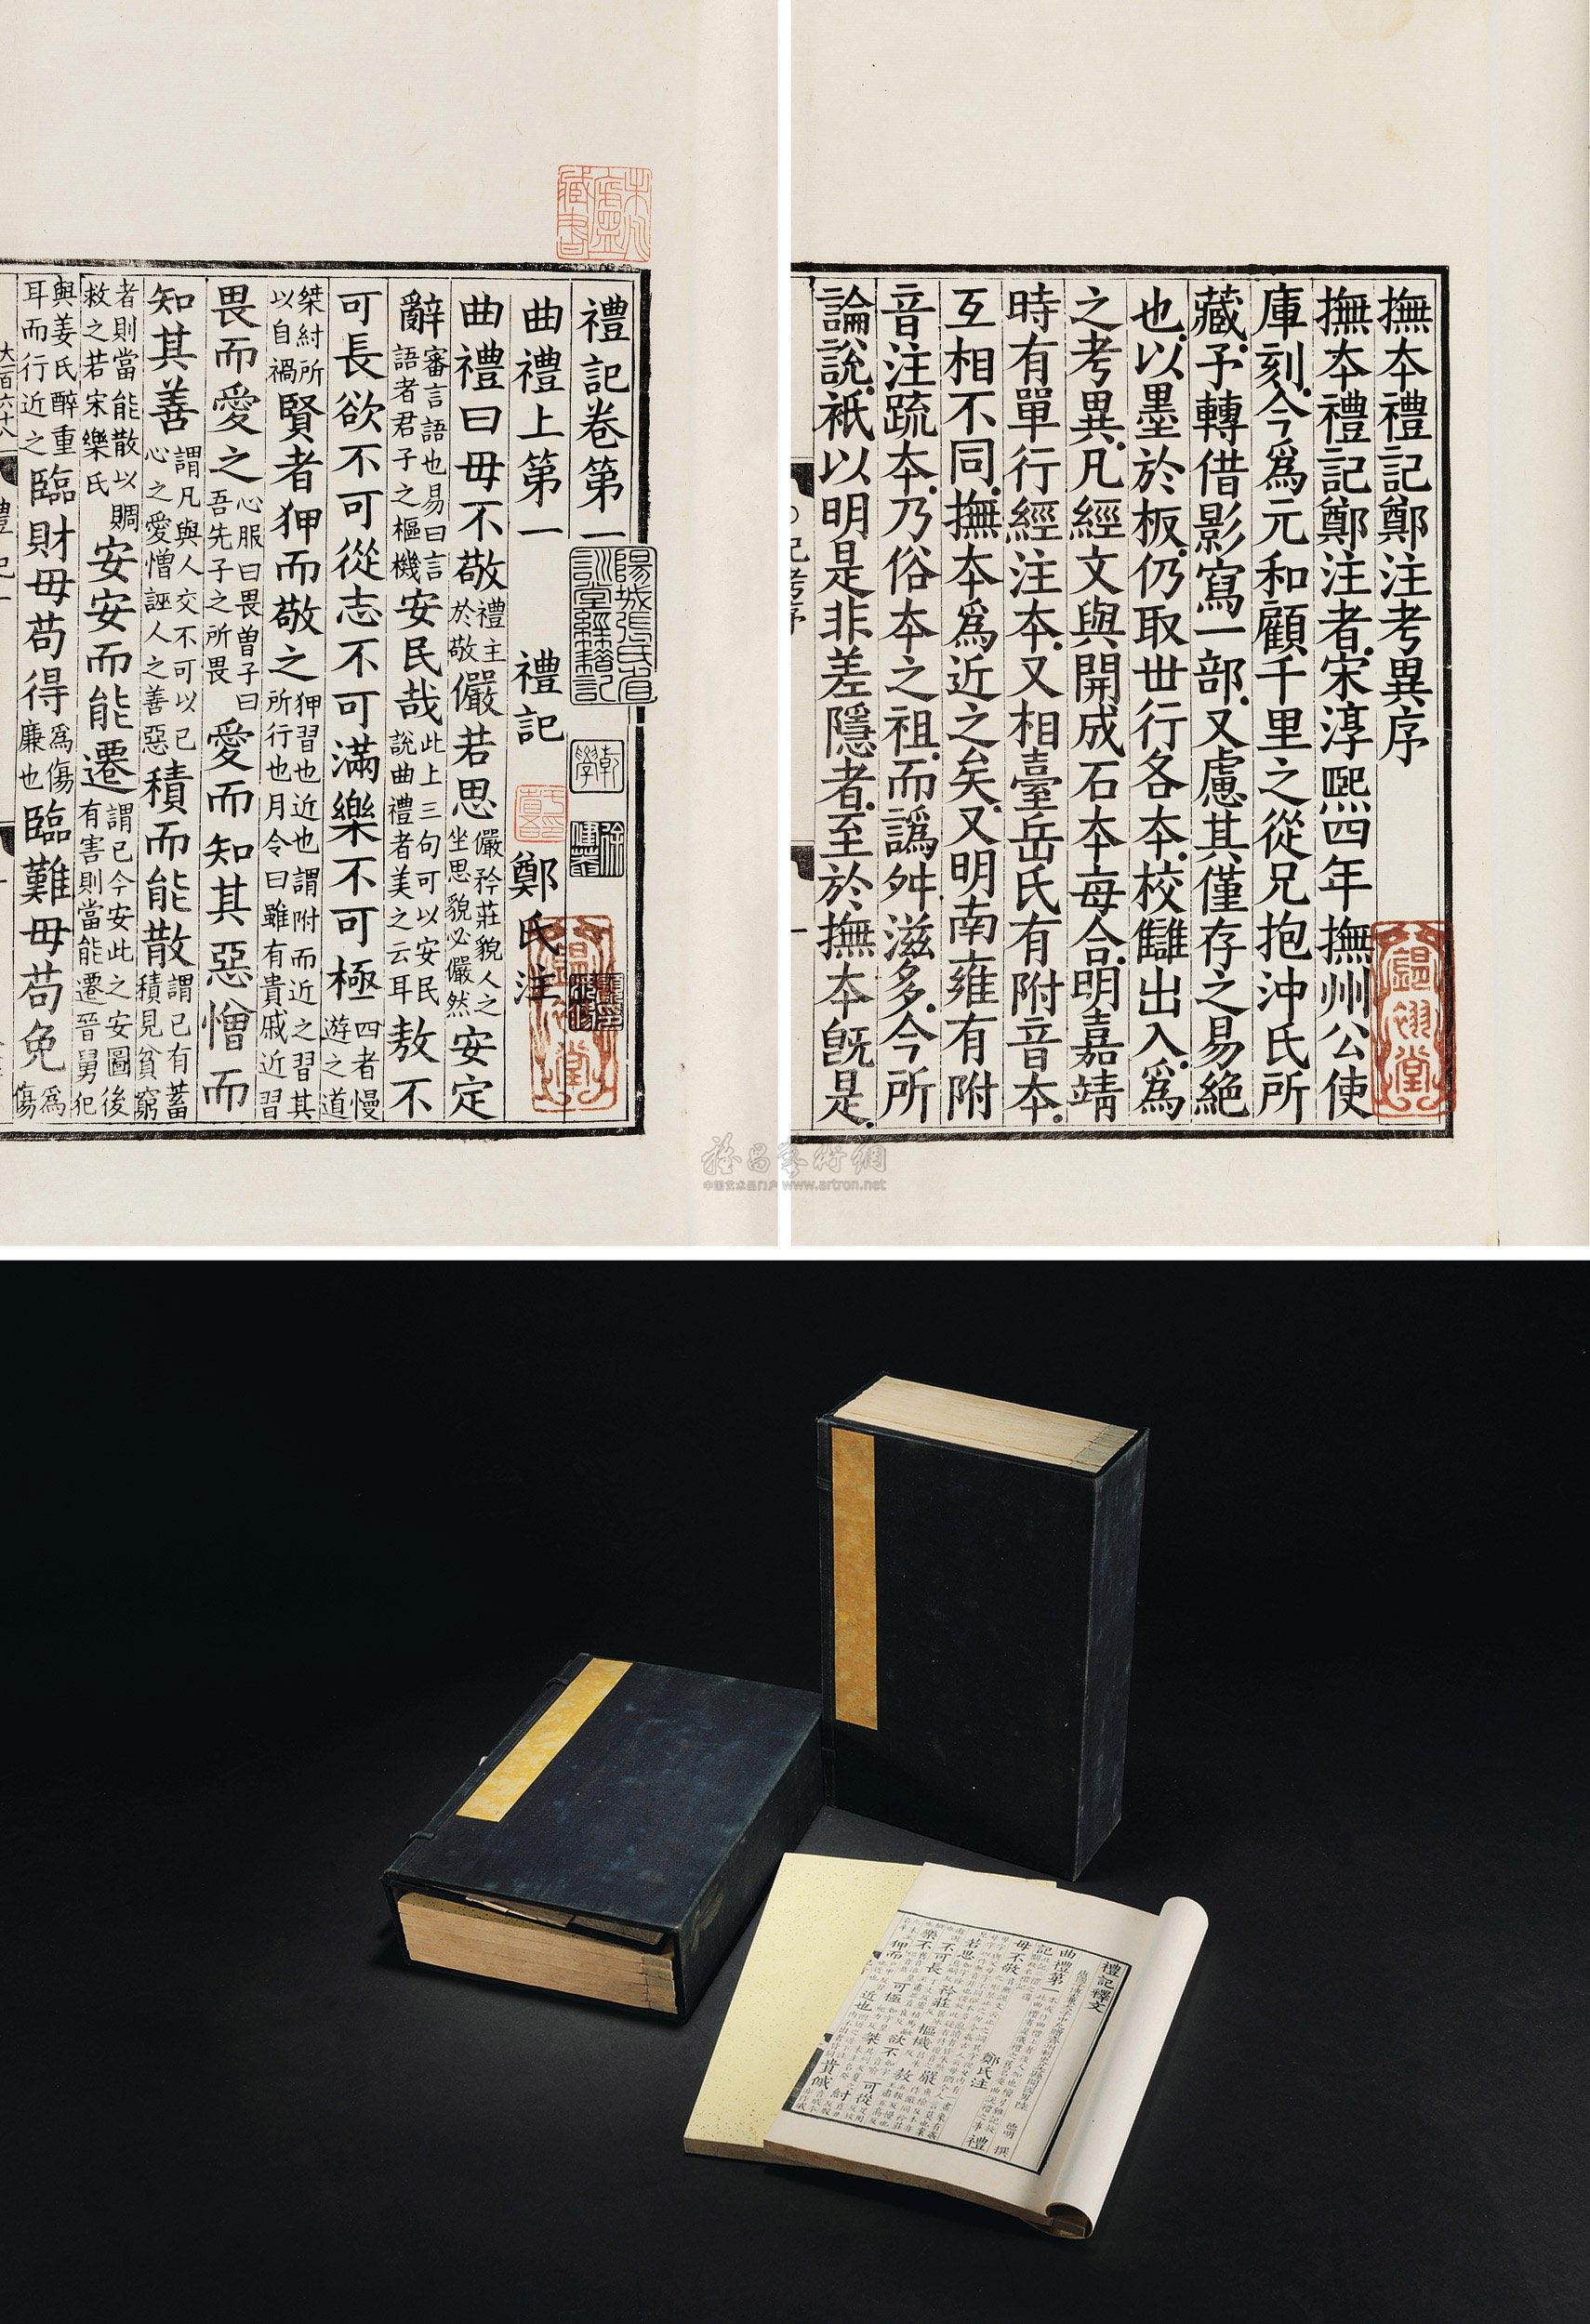 撫本禮記鄭注考異序
撫本禮記鄭注者宋淳熙四年撫州公使
庫刻今爲元和顧千里之從兄抱沖氏所
藏予轉借影寫一部又慮其僅存之易絶
也以墨於板仍取世行各本校讎出入爲
之考異凡經文與開成石本每合明嘉靖
時有單行經注本又相臺岳氏有附音本
互相不同撫本爲近之矣又明南雍有附
音注疏本乃俗本之祖而譌舛滋多今所
論說祇以明是非差隱者至於撫本旣是
禮記卷第一
曲禮上第一 禮記 鄭氏注
曲禮曰毋不敬禮主於敬儼若思儼矜莊貌人之坐思貌必儼然安定
辭審言語也易曰言語者君子之樞機安民哉此上三句可以安民說曲禮者美之云耳敖不
可長欲不可從志不可滿樂不可極四者慢遊之道
桀紂所以自禍賢者狎而敬之狎習也近也謂附而近之習其所行也月令曰雖有貴戚近習
畏而愛之心服曰畏曾子曰吾先子之所畏愛而知其惡憎而
知其善謂凡與人交不可以己心之愛憎誣人之善惡積而能散謂己有蓄積見貧窮
者則當能散以賙救之若宋樂氏安安而能遷謂己今安此之安圖後有害則當能遷晉舅犯
與姜氏醉重耳而行近之臨財毋苟得爲傷廉也臨難毋苟免爲傷
大一百六十八
陽城張氏省訓堂經籍記
乾學
徐健菴
錫翊堂
禮記釋文
曲禮第一
鄭氏注
雅昌藝術網
www.artron.net